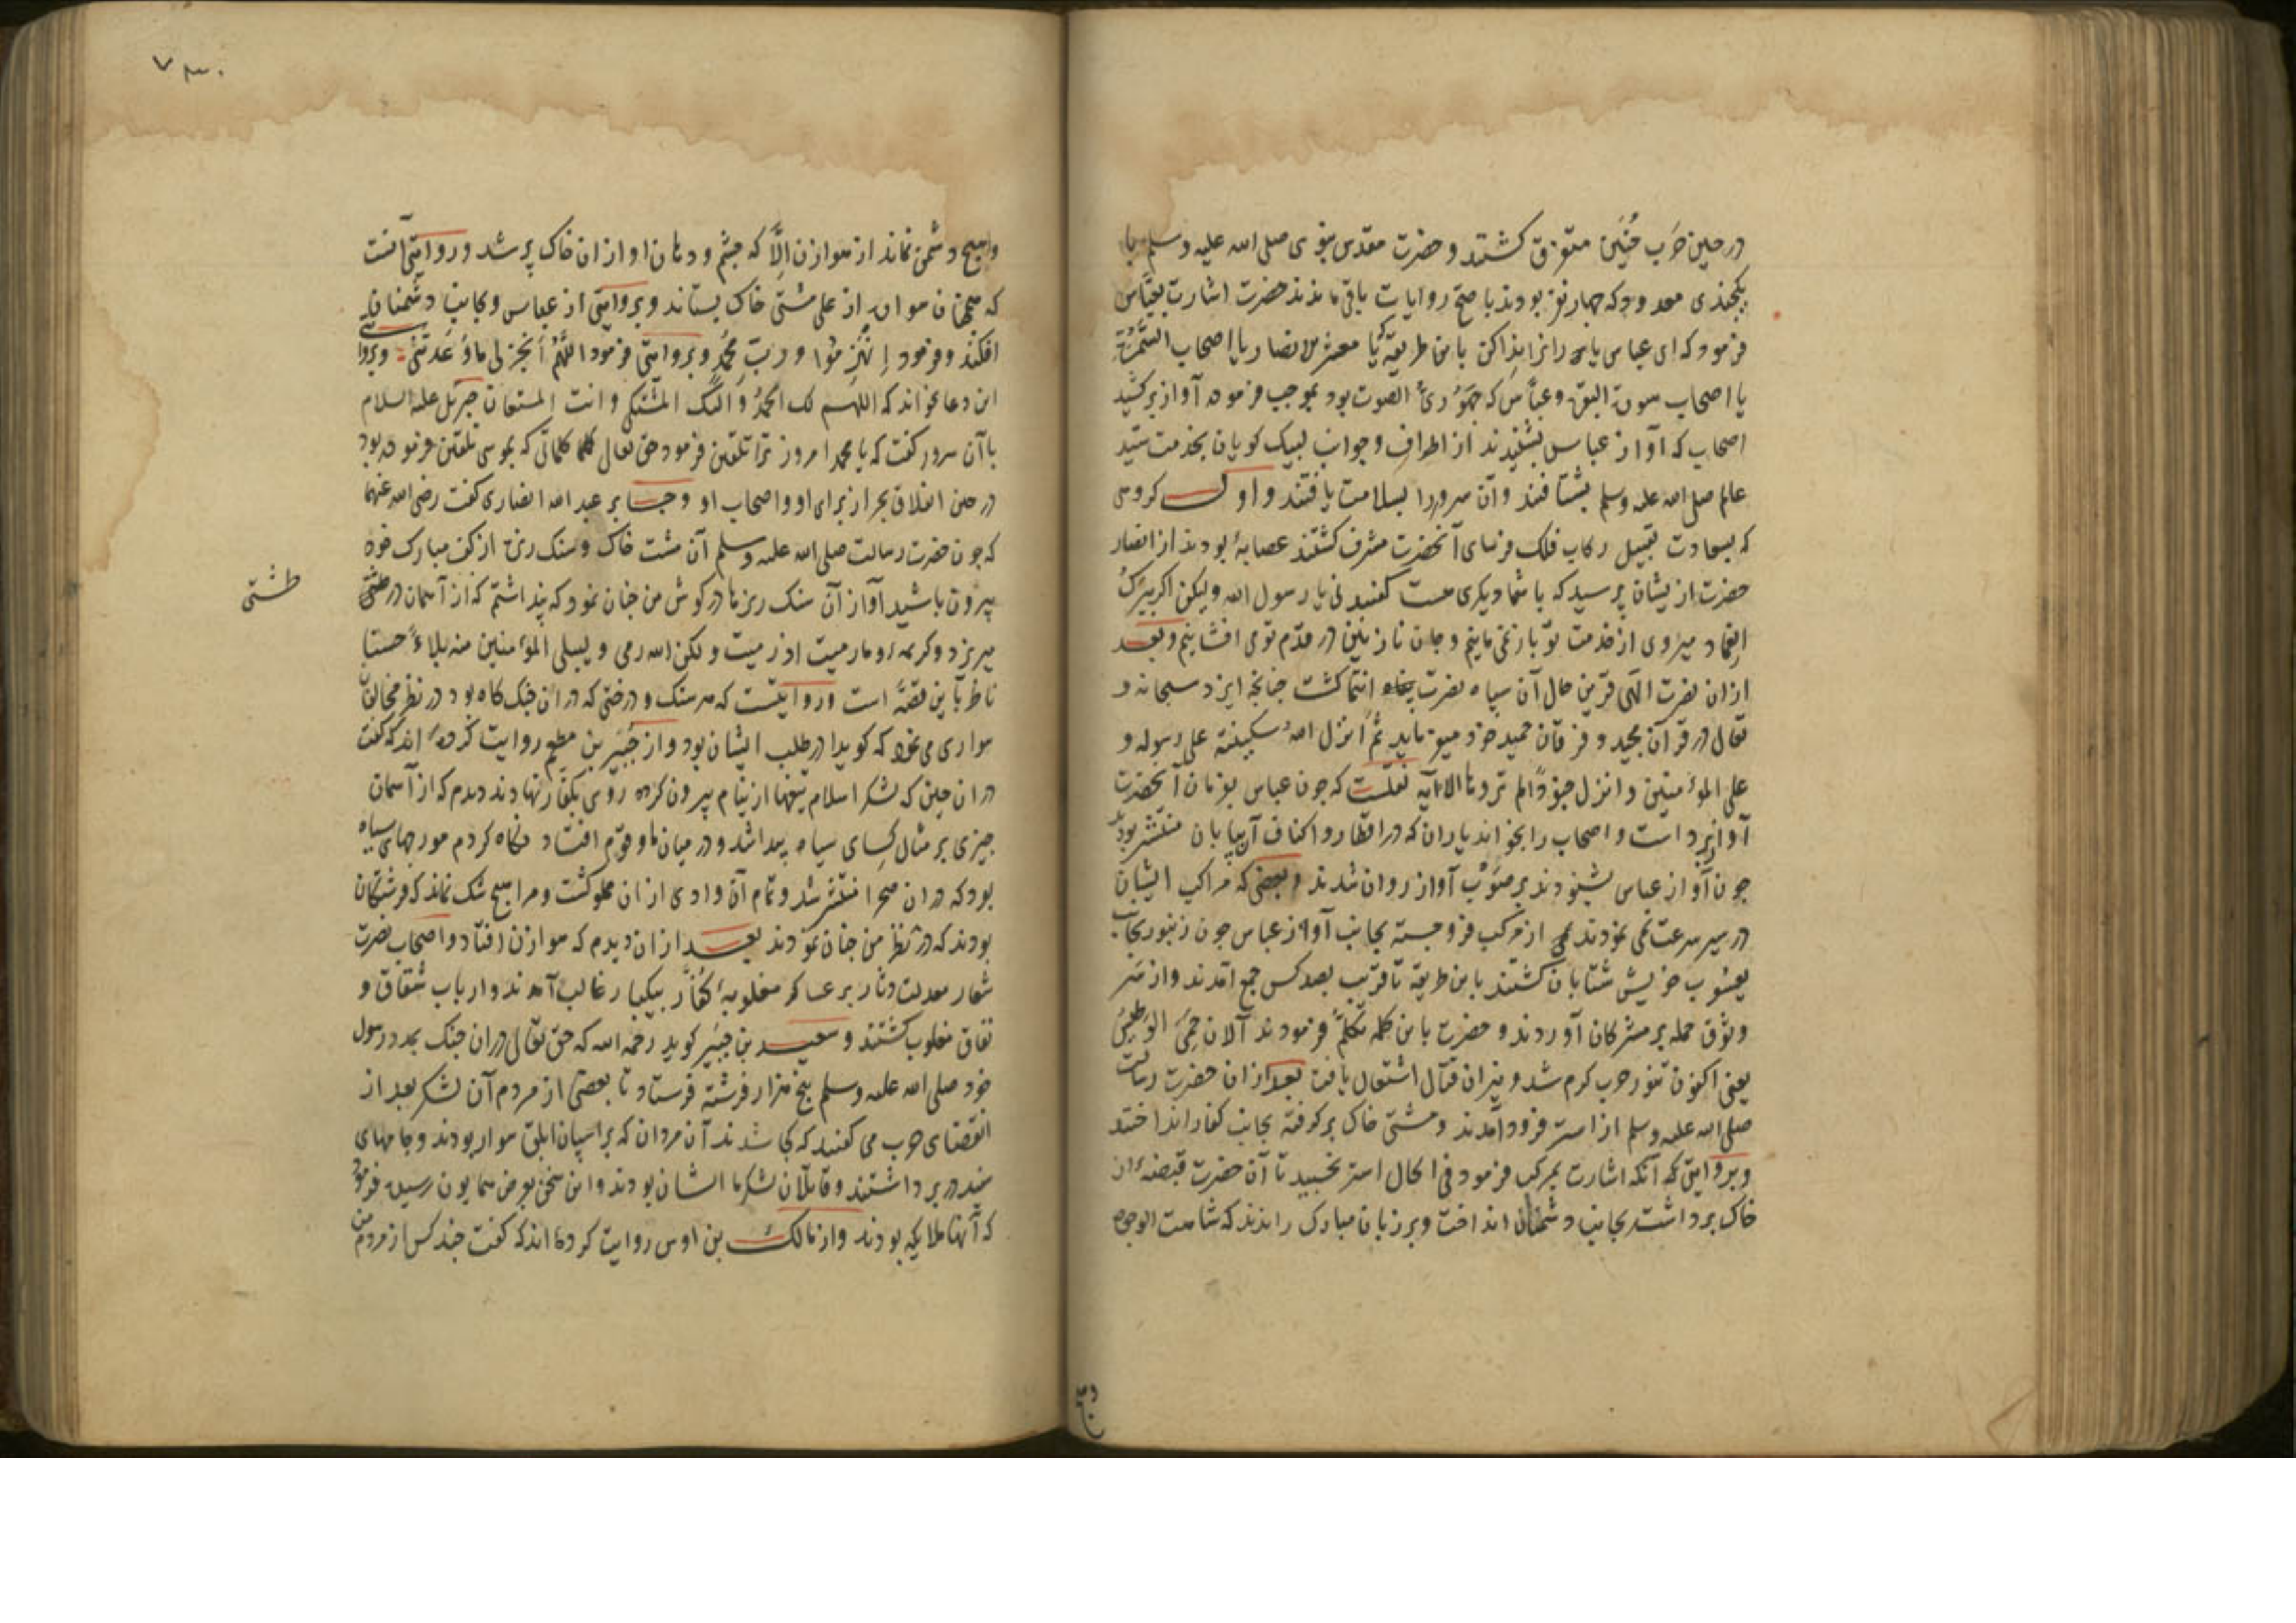 در حین حَرب حُنَین متفرق کشتند و حضرت مقدس نبوی صلی الله علیه وسلم با
معدود که چهار نفر بودند باصح روایات باقی ماندند حضرت اشارت بعبّاس
فرمود که ای عباس یاران را ندا کن باین طریقه که یا معشر الانصار یا اصحاب السَّمُرَة
یا اصحاب سورة البقرة و عبّاس که جَهْوَرِیُّ الصوت بود بموجب فرموده آواز برکشید
اصحاب که آواز عباس بشنیدند از اطراف و جوانب لبیک کویان بخدمت سید
عالم صلی الله علیه وسلم بشتافتند و آن سرور را بسلامت یافتند و اول کروهی
که بسعادت تقبیل رکاب فلک فرسای آنحضرت مشرف کشتند عصابهٔ بودند از انصار
حضرت ازیشان پرسید که با شما دیکری هست کفتند نی یا رسول الله ولیکن اکر ببَرکُ
الغماد میروی از خدمت تو باز نمی مانیم و جان نازنین در قدم تو می افشانیم و بعد
ازان نصرت الهی قرین حال آن سپاه نصرت انتما کشت چنانچه ایزد سبحانه و
تعالی در قرآن مجید و فرقان حمید خود میفرماید ثُمَّ اَنزل الله سکینته علی رسوله و
علی المؤمنین و انزل جنودًا لم تروها الآیه نقلست که چون عباس بفرمان آنحضرت
آواز برداشت و اصحاب را بخواند یاران که در اقطار و اکناف آن بیابان منتشر بودند
چون آواز عباس بشنودند بر صَوْب آواز روان شدند و بعضی که مراکب ایشان
در سیر سرعت نمی نمودند از مرکب فرو جسته بجانب آواز عباس چون زنبور بجانب
یعسُوب خویش شتابان کشتند باین طریقه تا قریب بصد کس جمع آمدند و از سَر
وثوق حمله بر مشرکان آوردند و حضرت باین کلمه تکلّم فرمودند آلان حَمِیَ الوَطیسُ
یعنی اکنون تنور حرب کرم شد و نیران قتال اشتعال یافت بعد ازان حضرت رسالت
صلی الله علیه وسلم از استر فرود آمدند و مشتی خاک برکرفته بجانب کفار انداختند
و بروایتی که آنکه اشارت بمرکب فرمود فی الحال استر بخسبید تا آن حضرت قبضهٔ ازان
خاک برداشت بجانب دشمنان انداخت و بر زبان مبارک راندند که شاهت الوجوه
۷۳۰
و هیچ دشمن نماند از هوازن اِلّا که چشم و دهان او ازان خاک پر شد و روایتی آنست
که همچنان سواره از علی مشتی خاک بستاند و بروایتی از عباس و بجانب دشمنان
افکند و فرمود اِنهَزِمُوا و ربّ مُحَمَّدٍ و بروایتی فرمود اللّهُمَّ اَنجِز لی ما وَعَدتَنی و بروایتی
این دعا بخواند که اللهم لک الحمدُ وَ الَیکَ المشتکی و انت المستعان جبریل علیه السلام
با آن سرور کفت که یا محمد امروز ترا تلقین فرمود حق تعالی کلماتی که بموسی تلقین فرموده بود
در حین انفلاق بحر از برای او و اصحاب او و جابر عبد الله انصاری کفت رضی الله عنهما
که چون حضرت رسالت صلی الله علیه وسلم آن مشت خاک و سنک ریزه از کف مبارک خود
بیرون پاشید آواز آن سنک ریزها در کوش من چنان نمود که پنداشتم که از آسمان در طشتی
طشتی
میریزد و کریمهٔ و ما رمیت اذ رمیت و لکن الله رمی و لیبلی المؤمنین منه بلاءً حسنا
ناظر باین قصّه است و روایتست که هر سنک و درختی که در ان جنک کاه بود در نظر مخالفان
سواری می نمود که کویا در طلب ایشان بود و از جُبَیر بن مطعم روایت کرده اند که کفت
در ان حین که لشکر اسلام تیغها از نیام بیرون کرده روی بکفّار نهادند دیدم که از آسمان
چیزی بر مثال کسای سیاه پیدا شد و در میان ما و قوم افتاد نکاه کردم مورچهای سیاه
بود که در ان صحرا منتشر شد و تمام آن وادی ازان مملو کشت و مرا هیچ شک نماند که فرشتکان
بودند که در نظر من چنان نمودند بعد ازان دیدم که هوازن افتاد و اصحاب نصرت
شعار معدلت دثار بر عساکر مغلوبهٔ کفّار بیکبار غالب آمدند و ارباب شقاق و
نفاق مغلوب کشتند و سعید بن جُبَیر کوید رحمه الله که حق تعالی در ان جنک بمدد رسول
خود صلی الله علیه وسلم پنج هزار فرشته فرستاد تا بعضی از مردم آن لشکر بعد از
انقضای حرب می کفتند که کجا شدند آن مردان که بر اسپان ابلق سوار بودند و جامهای
سفید در بر داشتند و قاتلان لشکر ما ایشان بودند و این سخن بعرض همایون رسید فرمود
که آنها ملایکه بودند و از مالک بن اوس روایت کرده اند که کفت چند کس از مردم من